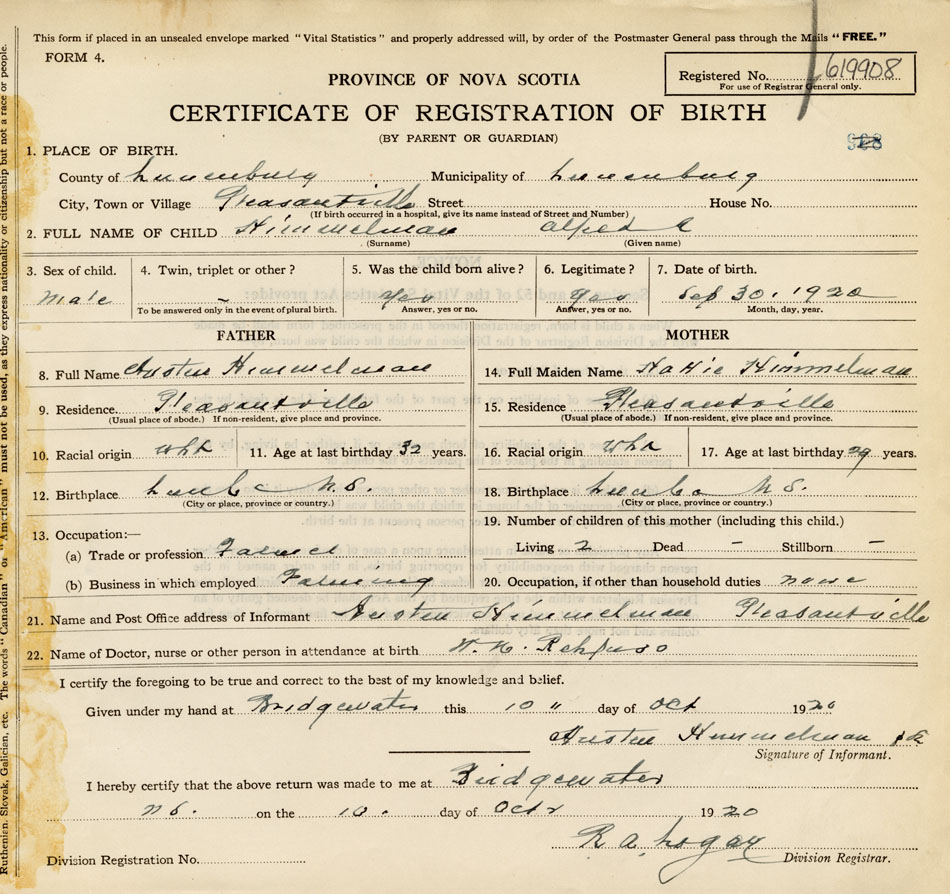 This form if placed in an unsealed envelope marked "Vital Statistics" and properly addressed will, by order of the Postmaster General pass through the Mails "FREE."
FORM 4.
Registered No. 619908
For use of Registrar General only.
PROVINCE OF NOVA SCOTIA
CERTIFICATE OF REGISTRATION OF BIRTH
(BY PARENT OR GUARDIAN)
1. PLACE OF BIRTH.
County of Lunenburg Municipality of Lunenburg
City, Town or Village Pleasantville Street House No.
(If birth occurred in a hospital, give its name instead of Street and Number)
2. FULL NAME OF CHILD Himmelman Alfred
(Surname) (Given name)
3. Sex of child. 4. Twin, triplet or other? 5. Was the child born alive? 6. Legitimate? 7. Date of birth.
Male – Yes Yes Sep 30. 1920
To be answered only in the event of plural birth. Answer, yes or no. Answer, yes or no. Month, day, year.
FATHER MOTHER
8. Full Name Austin Himmelman 14. Full Maiden Name Hattie Himmelman
9. Residence. Pleasantville 15. Residence Pleasantville
(Usual place of abode.) If non-resident, give place and province. (Usual place of abode.) If non-resident, give place and province.
10. Racial origin 11. Age at last birthday 32 years. 16. Racial origin 17. Age at last birthday 29 years.
12. Birthplace N.S. 18. Birthplace N.S.
(City or place, province or country.) (City or place, province or country.)
13. Occupation:— 19. Number of children of this mother (including this child.)
(a) Trade or profession Farmer Living 2 Dead – Stillborn –
(b) Business in which employed Farming 20. Occupation, if other than household duties none
21. Name and Post Office address of Informant Austin Himmelman Pleasantville
22. Name of Doctor, nurse or other person in attendance at birth Rehfuss
I certify the foregoing to be true and correct to the best of my knowledge and belief.
Given under my hand at Bridgewater this 10 " day of Oct 1920
Austin Himmelman
Signature of Informant.
I hereby certify that the above return was made to me at Bridgewater
N.S. on the 10. day of Octr 1920
R. A. Logan
Division Registration No. Division Registrar.
Ruthenian, Slovak, Galician, etc. The words "Canadian" or "American" must not be used, as they express nationality or citizenship but not a race or people.